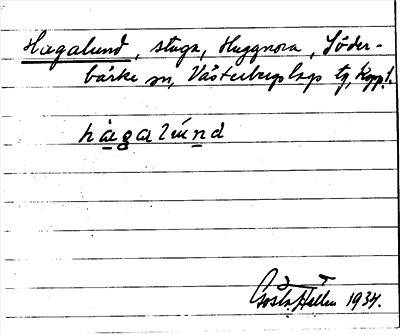 Hagalund, stuga, Huggnora, Söder-
bärke sn, Västerbergslags tg, Kopp. l.
hagalund
Gösta Hallén 1934.